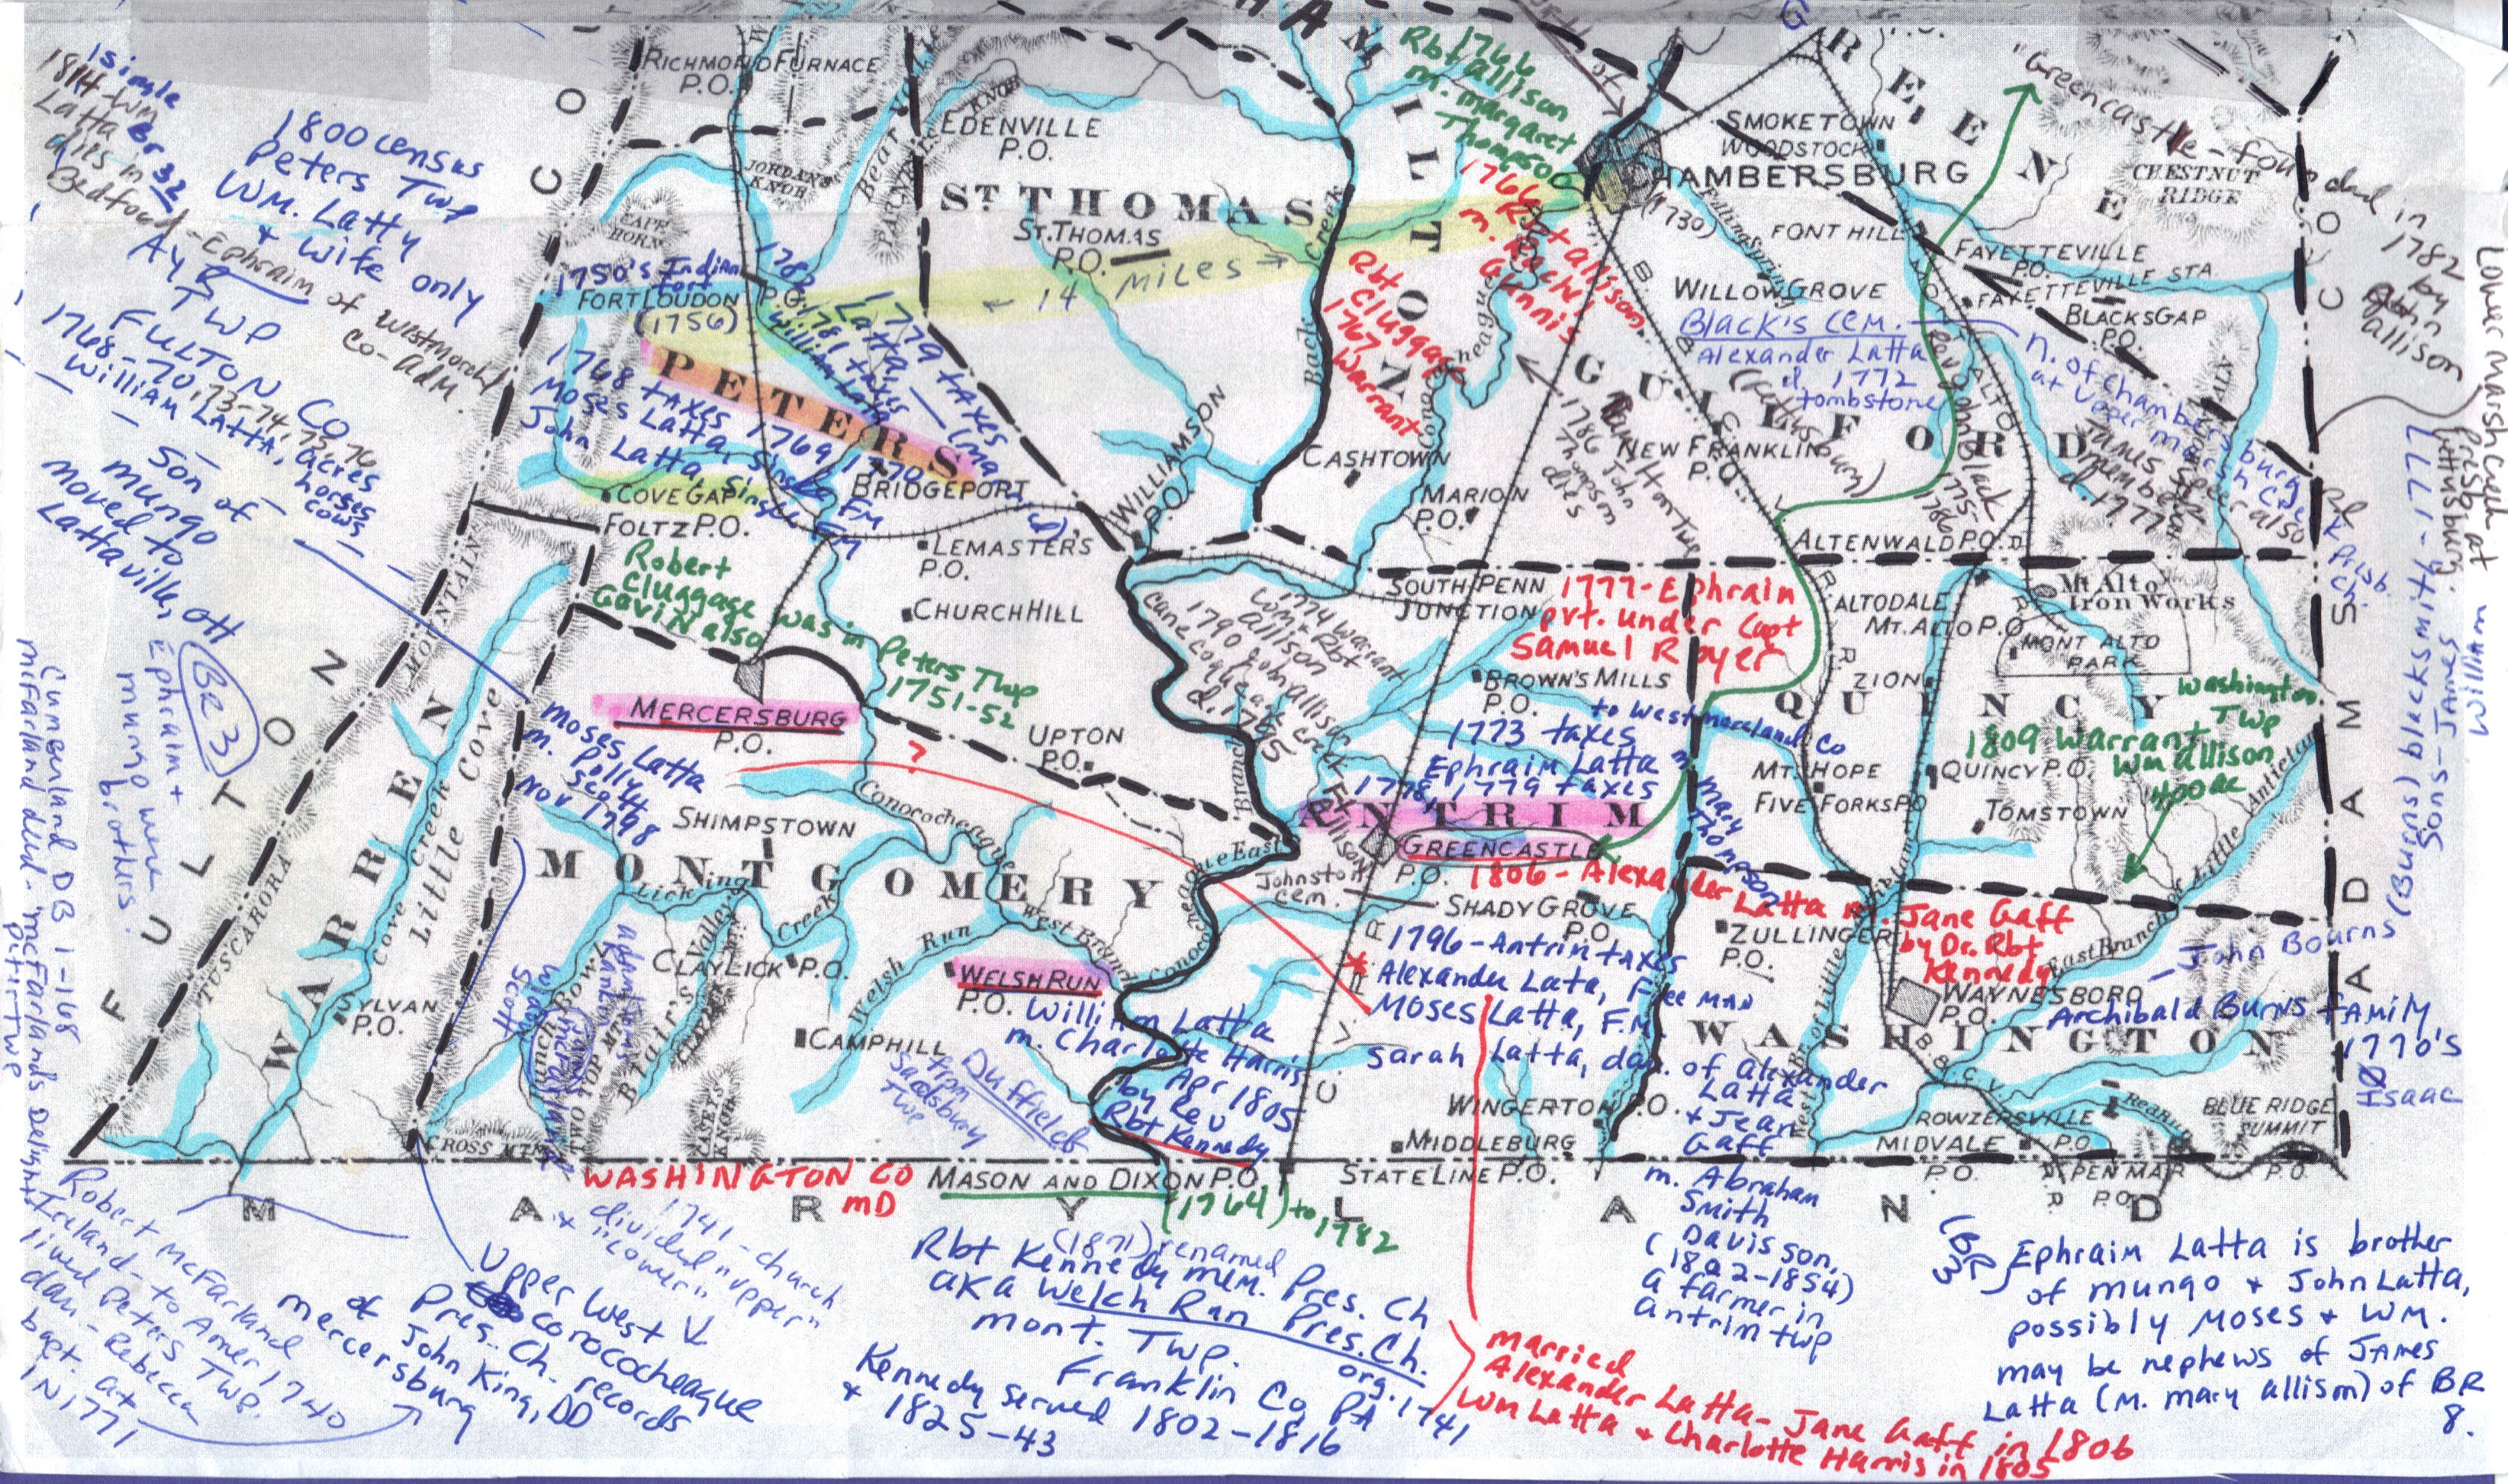 HAM
HAMILTON
G
GREENE
RICHMOND FURNACE
P.O.
EDENVILLE
P.O.
KNOB
JORDAN'S
KNOB
CAPE
HORN
ST. THOMAS
ST. THOMAS
P.O.
← 14 MILES →
Back Creek
SMOKETOWN
WOODSTOCK
CHAMBERSBURG
(1730)
Falling Spring
FONT HILL
FAYETTEVILLE
P.O.
FAYETTEVILLE STA.
CHESTNUT
RIDGE
BLACKSGAP
P.O.
WILLOW GROVE
1766
Rbt Allison
m. Margaret
Thompson
1766
m. Rbt Allison
Rbt
Cluggage
1767
Warrant
"Greencastle - founded in
1782
by
John
Allison
1 single
1814 - Wm
Latta Br 32
dies in
Bedford - Ephraim of Westmorel
Co - Adm.
1800 census
Peters Twp
WM. Latty
+ wife only
AYR
TWP
FULTON CO
1768-70, 73-74, 75, 76
William Latta, acres
horses
cows
son of
mungo
moved to
Lattaville, OH
Ephraim +
mungo were
brothers.
BR 3
1750's Indian
Fort
FORT LOUDON P.O.
(1756)
PETERS
1782
1781 taxes
William Latta
1779 taxes
Latta,
1768 taxes 1769 1770
Moses Latta, single FM
John Latta, single FM
COVE GAP
FOLTZ P.O.
BRIDGEPORT
LEMASTER'S
P.O.
CHURCH HILL
WILLIAMSON
P.O.
CASHTOWN
MARION
P.O.
GUILFORD
NEW FRANKLIN
P.O.
Black's Cem.
Alexander Latta
d. 1772
tombstone
(Fettisbury)
n. of Chambersburg
at Upper Marsh Creek
Presb.
Ch.
Rev John Black
1775-
1786
James Latta
member also
d. 1777
Hamilton Twp
1786 John
Thompson
dies
Lower Marsh Creek
Presb at
Gettysburg.
(Burns) blacksmith - 1777
Sons - James
William
ALTENWALD P.O.
SOUTH PENN
JUNCTION
ALTODALE
MT. ALTO P.O.
Mt Alto
Iron Works
MONT ALTO
PARK
ZION
Robert
Cluggage was in Peters Twp
Gavin also 1751-52
MERCERSBURG
P.O.
UPTON
P.O.
?
1774 warrant
Wm + Rbt
Allison
1790 John Allison
Conecoqueague Creek
d. 1795
1777 - Ephraim
pvt. under Capt
Samuel Royer
BROWN'S MILLS
P.O.
to Westmoreland Co
1773 taxes
Ephraim Latta
1778, 1779 taxes
m Mary
Thompson?
ANTRIM
GREENCASTLE
P.O.
QUINCY
MT. HOPE
FIVE FORKS P.O.
QUINCY P.O.
TOMSTOWN
Washington
Twp
1809 Warrant
Wm Allison
400 ac
FULTON CO
ADAMS CO
TUSCARORA
MOUNTAIN
WARREN
Cove Creek
Little Cove
SYLVAN
P.O.
Moses Latta
m. Polly
Scott
Nov 1798
SHIMPSTOWN
MONTGOMERY
Conococheague
Licking Creek
West Branch
Conococheague East Branch
CLAYLICK P.O.
Welsh Run
WELSH RUN
P.O.
CAMPHILL
Blair's Valley
TWO TOP MT.
CASEY'S
KNOB
CROSS MTN.
William Latta
m. Charlotte Harris
Apr 1805
by Rev
Rbt Kennedy
Duffields
from
Sadsbury
Twp
Johnston
cem.
1806 - Alexander Latta m. Jane Gaff
by Dr. Rbt
Kennedy
SHADY GROVE
P.O.
ZULLINGER
P.O.
1796 - Antrim taxes
* Alexander Lata, Free man
Moses Latta, F.M.
Sarah Latta, dau. of Alexander
Latta
+ Jean
Gaff
m. Abraham
Smith
Davisson,
(1802-1854)
a farmer in
Antrim twp
C. V. R. R.
WAYNESBORO
P.O.
WASHINGTON
East Branch of Little Antietam
West Br. of Little Antietam
John Bourns
Archibald Burns family
1770's
Isaac
WINGERTON P.O.
MIDDLEBURG
ROWZERSVILLE
P.O.
MIDVALE
P.O.
BLUE RIDGE
SUMMIT
P.O.
PEN MAR
P.O.
STATE LINE P.O.
WASHINGTON CO
MD
MASON AND DIXON P.O.
(1764) to 1782
MARYLAND
Cumberland DB 1-168
McFarland deed - "McFarland's Delight"
Peters Twp
Robert McFarland
Ireland - to Amer 1740
lived Peters Twp.
dau - Rebecca
bapt. at
IN 1771
1741 - church
divided "upper"
+ "lower"
Upper West
Conococheague
Pres. Ch. records
of John King, DD
Mercersburg
(1871) renamed
Rbt Kennedy mem. Pres. Ch
AKA Welch Run Pres. Ch.
org. 1741
mont. Twp.
Franklin Co, PA
Kennedy served 1802-1816
+ 1825-43
married
Alexander Latta - Jane Gaff in 1806
Wm Latta + Charlotte Harris in 1805
(BR 3) Ephraim Latta is brother
of mungo + John Latta,
possibly Moses + WM.
may be nephews of James
Latta (m. mary allison) of BR
8.